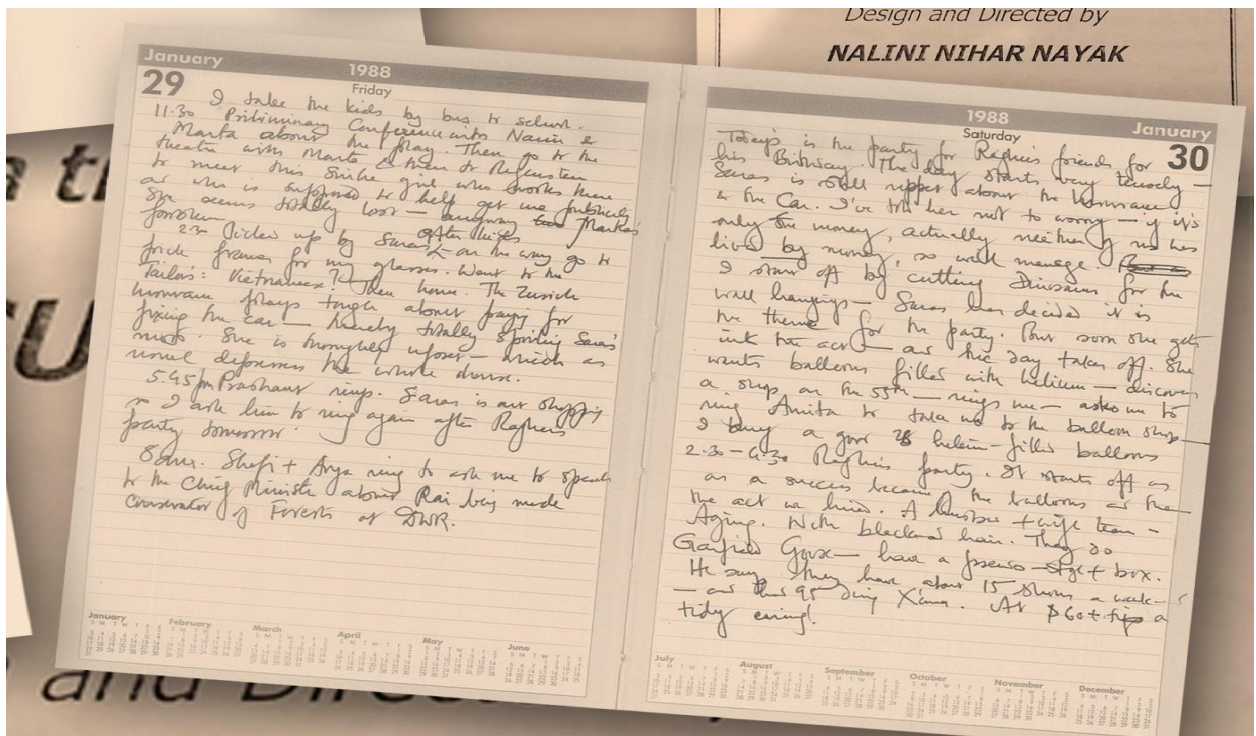 Design and Directed by
NALINI NIHAR NAYAK
January
1988
29
Friday
I take the kids by bus to school.
11.30 Preliminary Conference with &
Marta about the play. Then go to the
theatre with Marta & then to
to meet this girl who works there
as who is supposed to help get me publicity
She seems totally lost — anyway Marta's
2.30 Picked up by Saras after
on the way go to
pick frames for my glasses. Went to the
Tailors: Vietnamese? Then home. The Zurich
Insurance plays tough about paying for
fixing the car — thereby totally spoiling Saras'
mood. She is thoroughly upset — which as
usual depresses the whole house.
5.45 pm Prashant rings. Saras is out shopping
so I ask him to ring again after Raghu's
party tomorrow.
8 Shefi + Arya ring to ask me to speak
to the Chief Minister about Rai being made
Conservator of Forests at DWR.
January
February
March
April
May
June
1988
January
Saturday
30
Today is the party for Raghu's friends for
his Birthday. The day starts very tensely —
Saras is still upset about the Insurance
& the Car. I've told her not to worry — if it's
only the money, actually neither of us has
lived by money, so will manage.
I start off by cutting Dinosaurs for the
wall hangings — Saras has decided it is
the theme for the party. But soon she gets
into the act — and the day takes off. She
wants balloons filled with helium — discovers
a shop on the 55th — rings me — asks me to
ring Anita to take us to the balloon shop —
I buy a good 28 helium-filled balloons
2.30 – 4.30 Raghu's party. It starts off as
as a success because of the balloons and the
the act we hired. A + wife team —
Aging. With blackened hair. They do
Garfield Goose — have a + box.
He says they have about 15 shows a week —
— and does 95 during Xmas. At $60 + tip a
tidy earning!
July
August
September
October
November
December